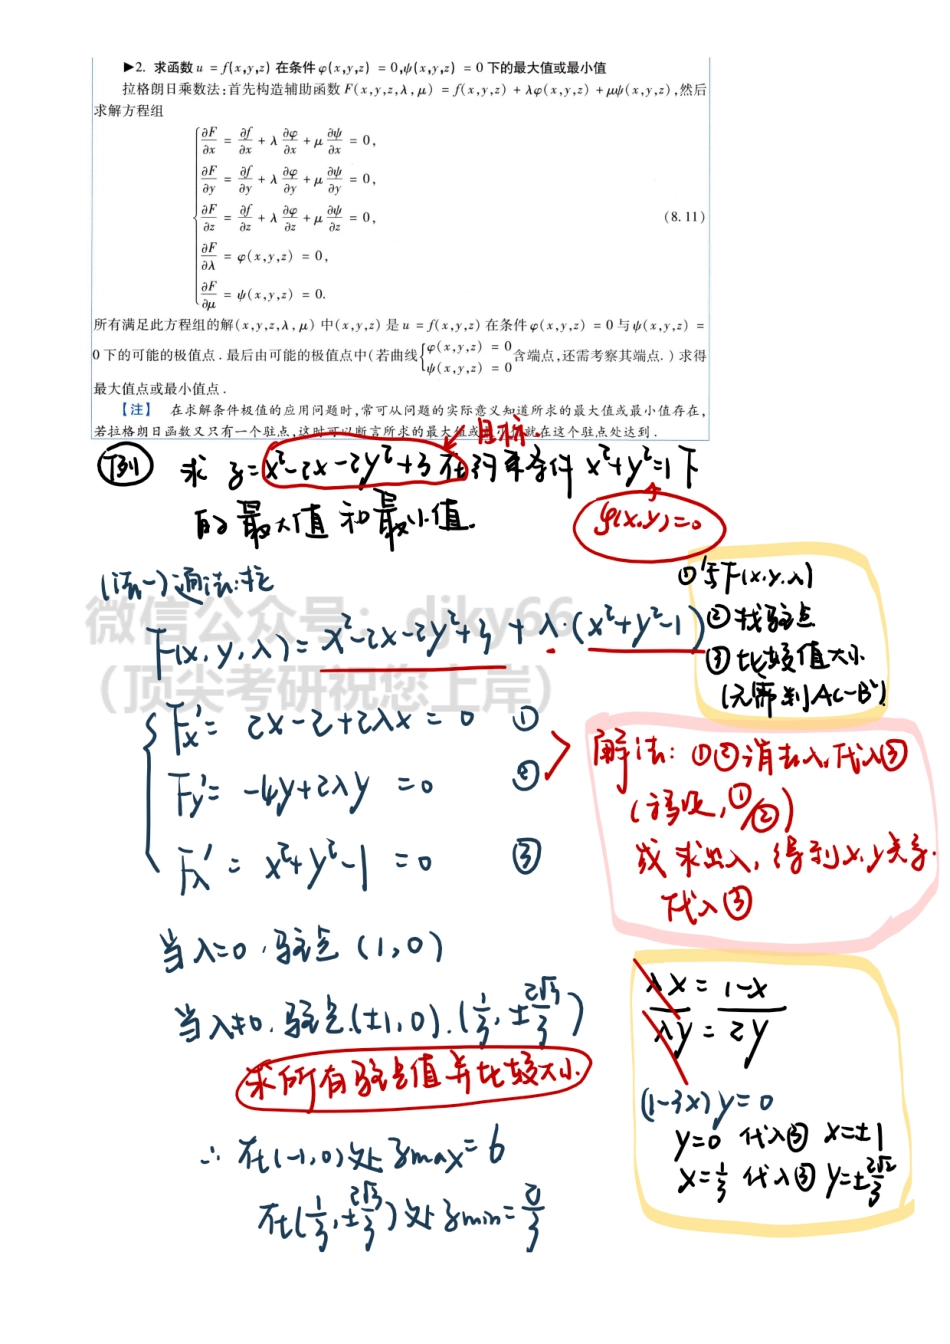 ▶2. 求函数 u = f(x,y,z) 在条件 φ(x,y,z) = 0,ψ(x,y,z) = 0 下的最大值或最小值
拉格朗日乘数法:首先构造辅助函数 F(x,y,z,λ,μ) = f(x,y,z) + λφ(x,y,z) + μψ(x,y,z),然后
求解方程组
∂F/∂x = ∂f/∂x + λ ∂φ/∂x + μ ∂ψ/∂x = 0,
∂F/∂y = ∂f/∂y + λ ∂φ/∂y + μ ∂ψ/∂y = 0,
∂F/∂z = ∂f/∂z + λ ∂φ/∂z + μ ∂ψ/∂z = 0,
(8.11)
∂F/∂λ = φ(x,y,z) = 0,
∂F/∂μ = ψ(x,y,z) = 0.
所有满足此方程组的解(x,y,z,λ,μ) 中(x,y,z) 是 u = f(x,y,z) 在条件 φ(x,y,z) = 0 与 ψ(x,y,z) =
0 下的可能的极值点.最后由可能的极值点中(若曲线{φ(x,y,z) = 0 ψ(x,y,z) = 0 含端点,还需考察其端点.) 求得
最大值点或最小值点.
【注】 在求解条件极值的应用问题时,常可从问题的实际意义知道所求的最大值或最小值存在,
若拉格朗日函数又只有一个驻点,这时可以断言所求的最大值或最小值就在这个驻点处达到.
目标.
例 求 z=x²-2x-2y²+3 在约束条件 x²+y²=1下
的最大值和最小值.
φ(x,y)=0
(法一)通法:拉
①写F(x,y,λ)
②找驻点
③比较值大小
(无需判AC-B²)
微信公众号: djky66
(顶尖考研祝您上岸)
F(x,y,λ)= x²-2x-2y²+3 + λ·(x²+y²-1)
Fx'= 2x-2+2λx = 0 ①
Fy'= -4y+2λy =0 ②
Fλ'= x²+y²-1 =0 ③
解法: ①②消去λ,代入③
(移项,①/②)
或求出λ,得到x,y关系.
代入③
当λ=0,驻点 (1,0)
当λ≠0,驻点(±1,0).(1/3,±2√2/3)
求所有驻点值并比较大小.
λx = 1-x
λy = 2y
(1-3x)y=0
y=0 代入③ x=±1
x=1/3 代入③ y=±2√2/3
∴ 在(-1,0)处 zmax=6
在(1/3,±2√2/3)处 zmin=2/3